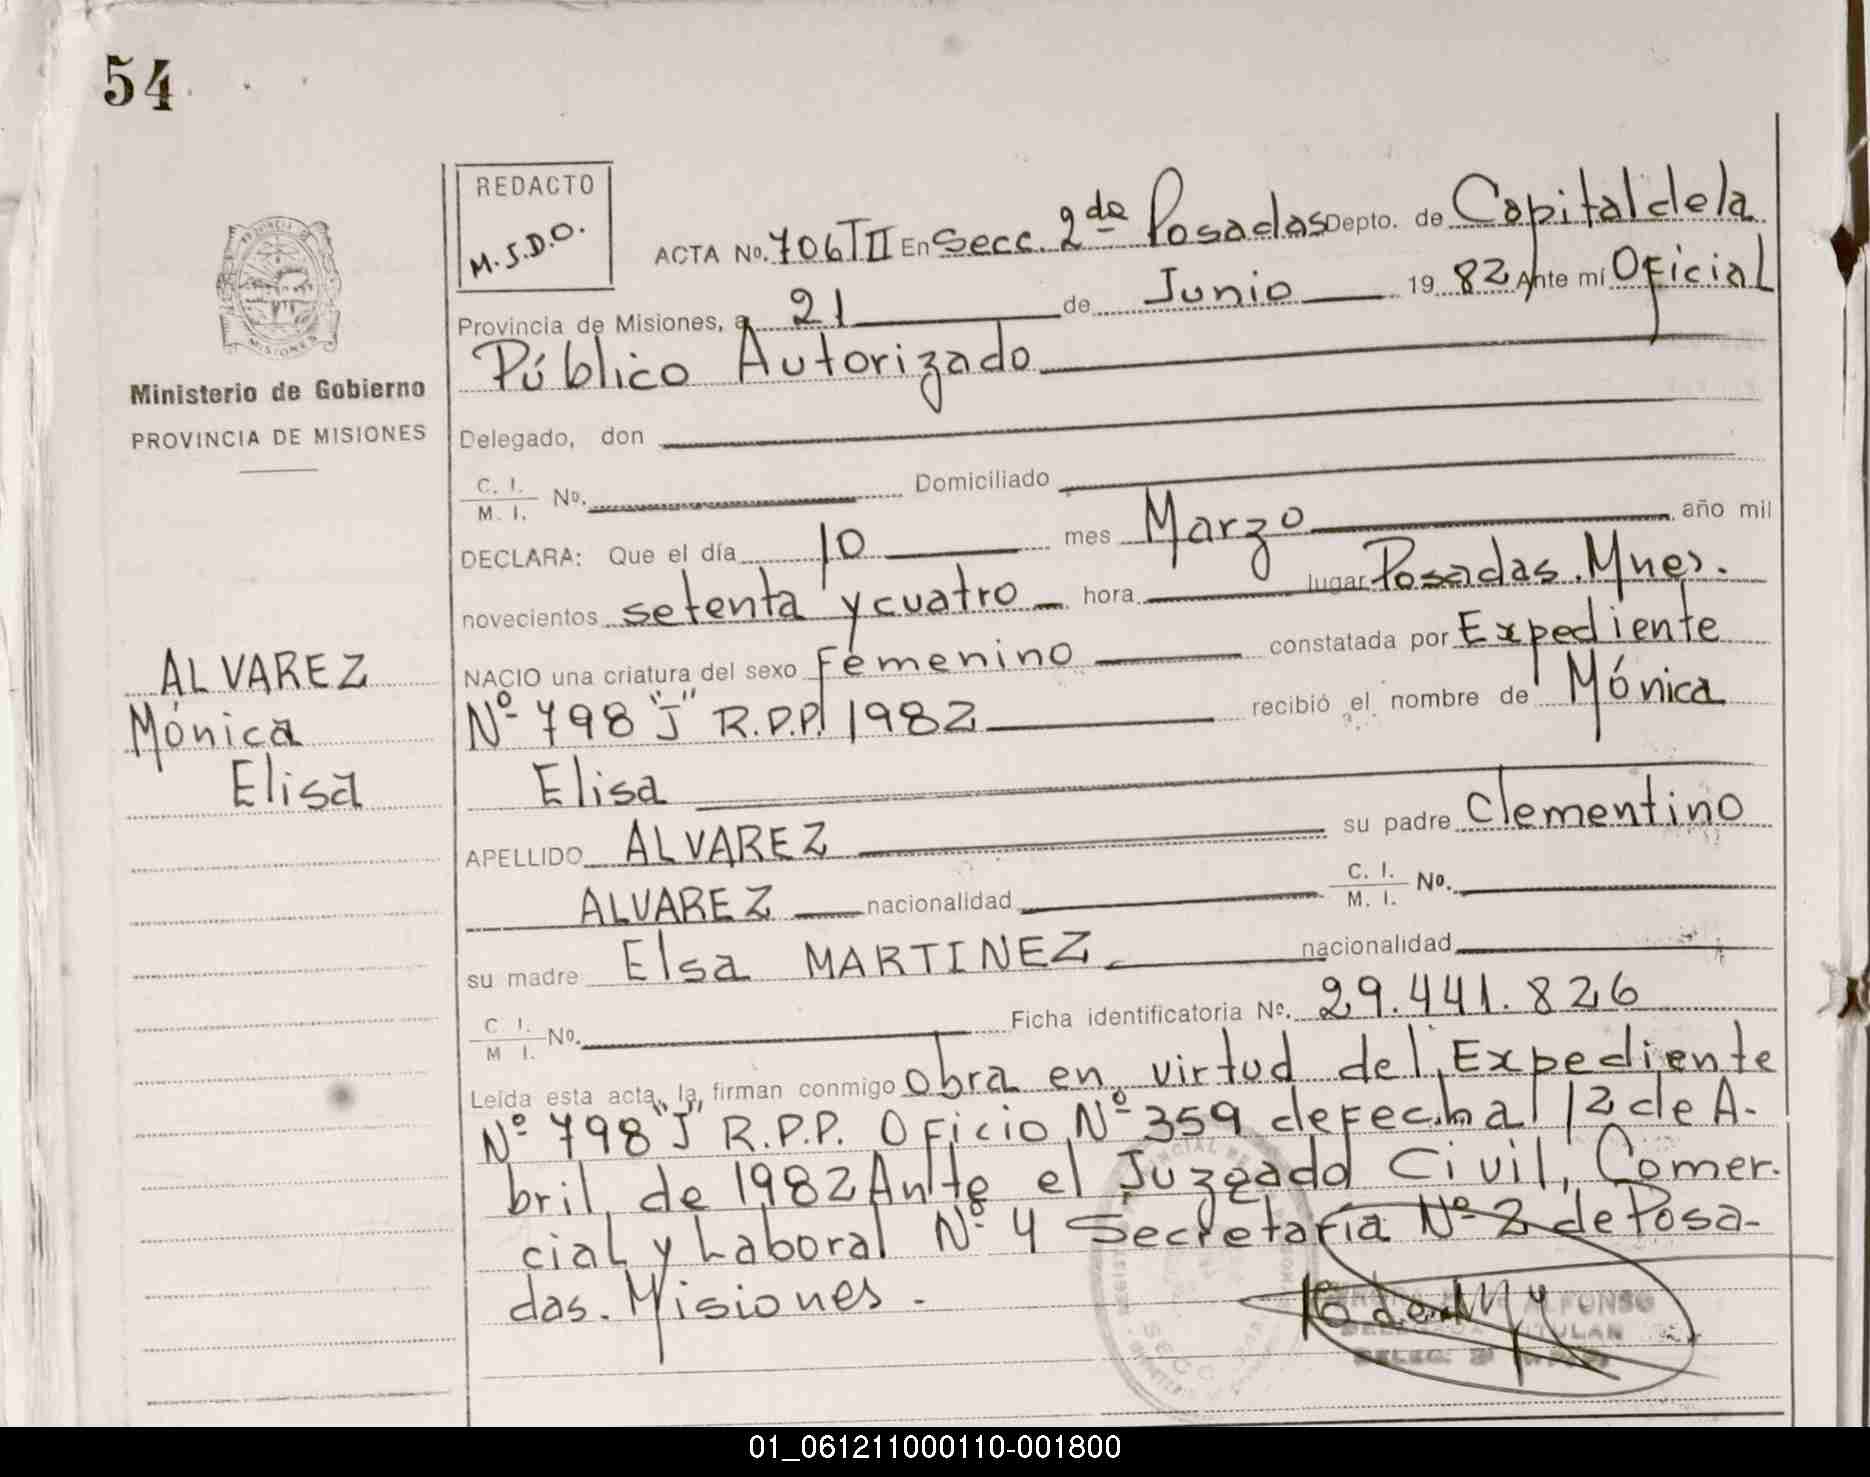 54
REDACTO
M.S.D.O.
ACTA No. 706 TII En Secc. 2da Posadas Depto. de Capital de la
Provincia de Misiones, a 21 de Junio 1982 Ante mí Oficial
Público Autorizado
MISIONES
Ministerio de Gobierno
PROVINCIA DE MISIONES
Delegado, don
C. I. / M. I. No. Domiciliado
DECLARA: Que el día 10 mes Marzo año mil
novecientos setenta y cuatro hora lugar Posadas. Mnes.
NACIO una criatura del sexo Femenino constatada por Expediente
Nº 798 "J" R.P.P. 1982 recibió el nombre de Mónica
Elisa
ALVAREZ
Mónica
Elisa
APELLIDO ALVAREZ su padre Clementino
ALVAREZ nacionalidad C. I. / M. I. No.
su madre Elsa MARTINEZ nacionalidad
C I. / M I. No. Ficha identificatoria No. 29.441.826
Leída esta acta, la firman conmigo obra en virtud del Expediente
Nº 798 "J" R.P.P. Oficio Nº 359 de fecha 12 de A-
bril de 1982 Ante el Juzgado Civil, Comer-
cial y Laboral Nº 4 Secretaría Nº 2 de Posa-
das. Misiones.
ALFONSO
01_061211000110-001800